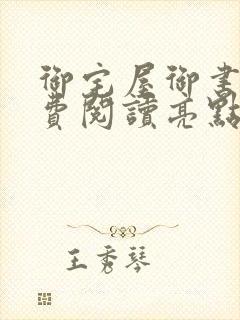 御宅屋御書
費閱讀亮點
王秀琴